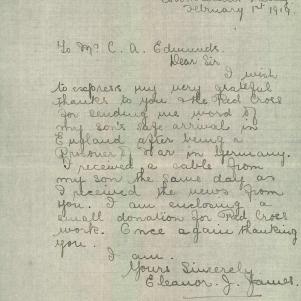 February 1st 1919
To Mr. C. A. Edmunds.
Dear Sir
I wish
to express my very grateful
thanks to you & the Red Cross
for sending me word of
my son's safe arrival in
England after being a
Prisoner of War in Germany.
I received a cable from
my son the same day as
I received the news from
you. I am enclosing a
small donation for Red Cross
work. Once again thanking
you.
I am.
Yours Sincerely
Eleanor. J. James.